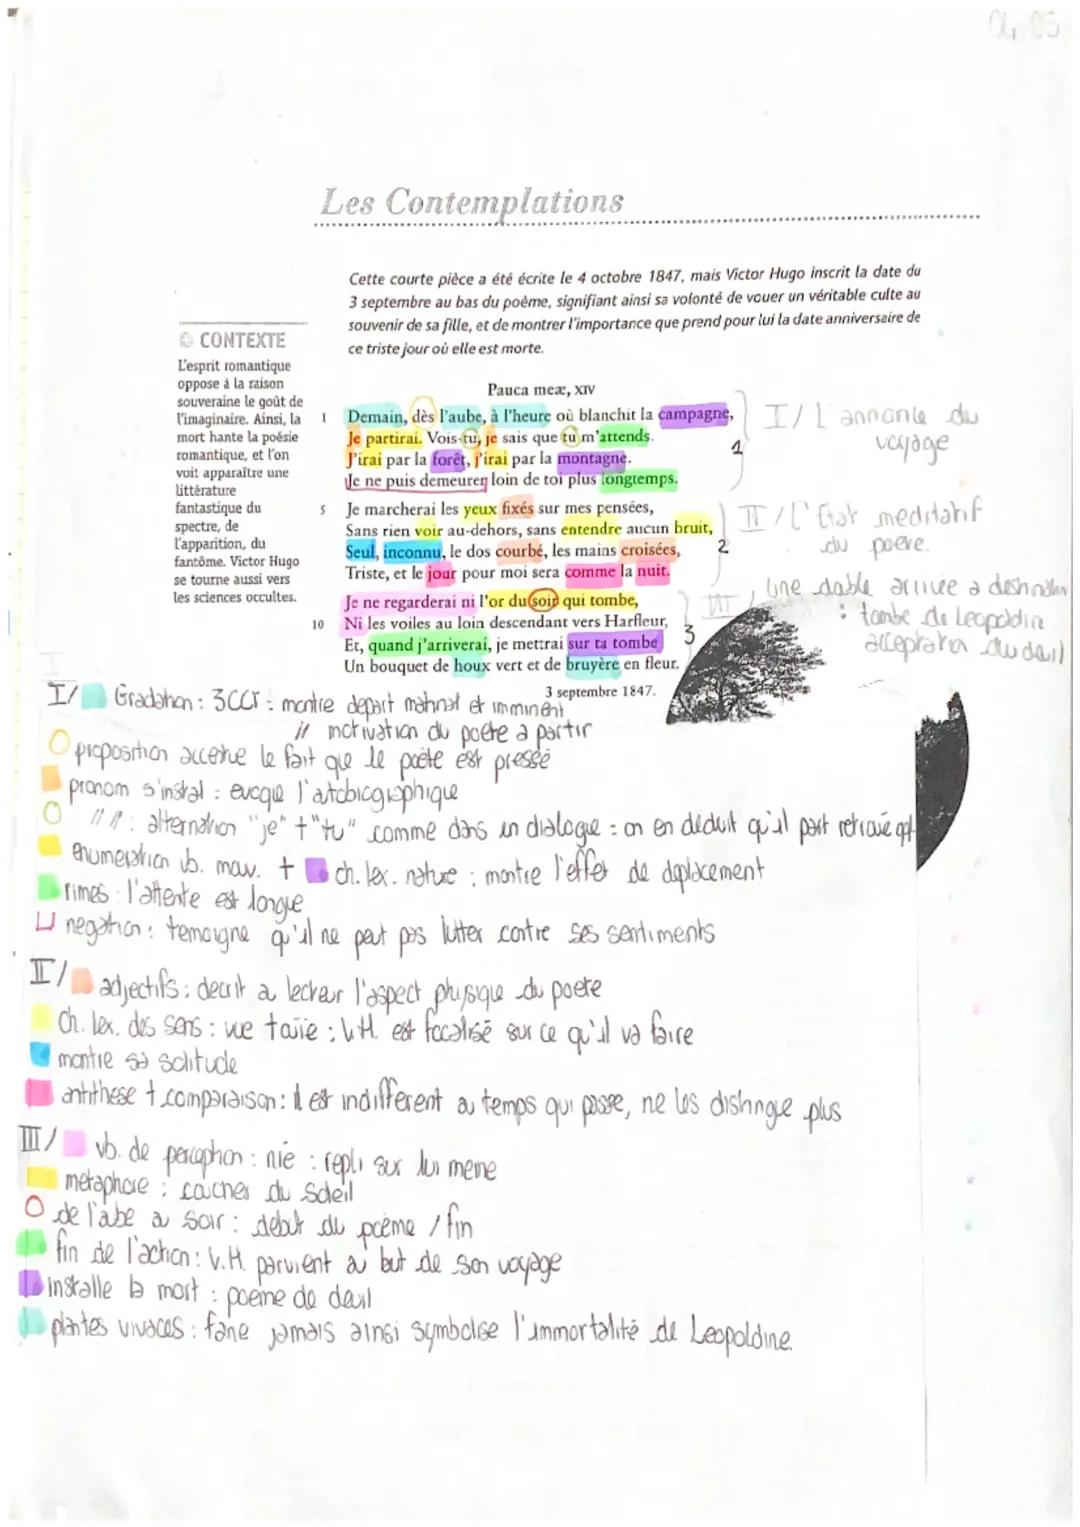 04.05
Les Contemplations
Cette courte pièce a été écrite le 4 octobre 1847, mais Victor Hugo inscrit la date du
3 septembre au bas du poème, signifiant ainsi sa volonté de vouer un véritable culte au
souvenir de sa fille, et de montrer l'importance que prend pour lui la date anniversaire de
ce triste jour où elle est morte.
CONTEXTE
L'esprit romantique
oppose à la raison
souveraine le goût de
l'imaginaire. Ainsi, la
mort hante la poésie
romantique, et l'on
voit apparaître une
littérature
fantastique du
spectre, de
l'apparition, du
fantôme. Victor Hugo
se tourne aussi vers
les sciences occultes.
Pauca meæ, XIV
1 Demain, dès l'aube, à l'heure où blanchit la campagne,
Je partirai. Vois-tu, je sais que tu m'attends.
J'irai par la forêt, j'irai par la montagne.
Je ne puis demeurer loin de toi plus longtemps.
5 Je marcherai les yeux fixés sur mes pensées,
Sans rien voir au-dehors, sans entendre aucun bruit,
Seul, inconnu, le dos courbé, les mains croisées,
Triste, et le jour pour moi sera comme la nuit.
Je ne regarderai ni l'or du soir qui tombe,
10 Ni les voiles au loin descendant vers Harfleur,
Et, quand j'arriverai, je mettrai sur ta tombe
Un bouquet de houx vert et de bruyère en fleur.
3 septembre 1847.
1
I/ L'annonce du
voyage
2
II/ L'Etat meditatif
du poete.
3
III/ Une dable arrivée a destination
: tombe de Leopoldin
acceptation du deuil
I
I/ Gradation : 3CCT : montre depart matinal et imminent
// motivation du poete a partir
proposition accentue le fait que le poète est pressé
pronom s'instal : evoque l'autobiographique
// // : alternation "je" + "tu" comme dans un dialogue : on en deduit qu'il part retrouvé
enumeration vb. mouv. + ch. lex. nature : montre l'effet de deplacement
rimes : l'attente est longue
negation : temoigne qu'il ne peut pas lutter contre ses sentiments
II/ adjectifs : decrit au lecteur l'aspect physique du poete
ch. lex. des sens : vue : V.H. est focalisé sur ce qu'il va faire
montre sa solitude
antithese + comparaison : il est indifferent au temps qui passe, ne les distingue plus
III/ vb. de perception : nié : repli sur lui meme
metaphore : coucher du soleil
de l'aube au soir : debut du poème / fin
fin de l'action : V.H. parvient au but de son voyage
installe la mort : poeme de deuil
plantes vivaces : fane jamais ainsi symbolise l'immortalité de Leopoldine.